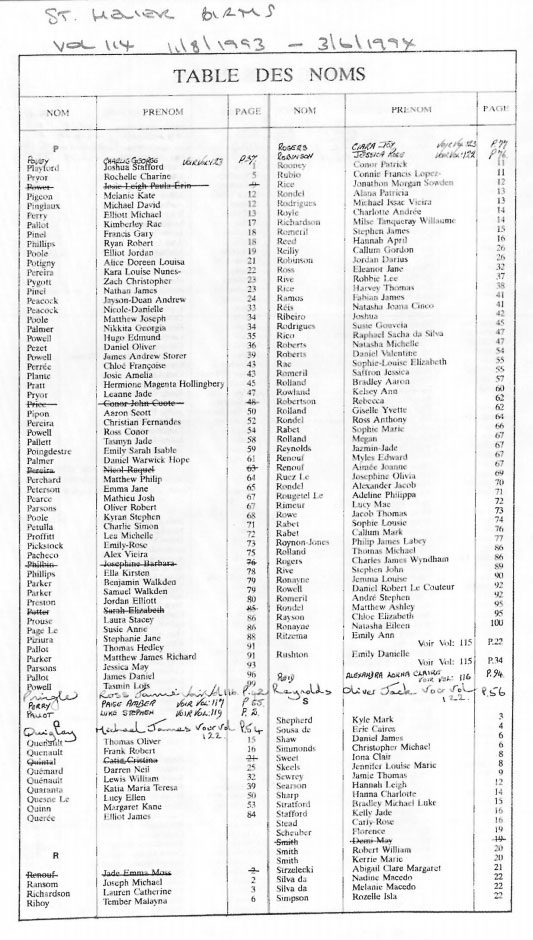 ST. HELIER BIRMS
VOL 114 11/8/1993 - 3/6/1994
TABLE DES NOMS
NOM PRENOM PAGE
P
CHARLIE GEORGE P.37
Playford Joshua Stafford 1
Pryor Rochelle Charine 5
Power Josie Leigh Paula Erin 9
Pigeon Melanie Kate 12
Pinglaux Michael David 12
Perry Elliott Michael 13
Pallot Kimberley Rae 17
Pinel Francis Gary 18
Phillips Ryan Robert 18
Poole Elliot Jordan 19
Potigny Alice Doreen Louisa 21
Pereira Kara Louise Nunes- 22
Pygott Zach Christopher 23
Pinel Nathan James 23
Peacock Jayson-Doan Andrew 24
Peacock Nicole-Danielle 33
Poole Matthew Joseph 34
Palmer Nikkita Georgia 34
Powell Hugo Edmund 35
Pezet Daniel Oliver 36
Powell James Andrew Storer 39
Perrée Chloé Françoise 43
Plante Josie Amelia 43
Pratt Hermione Magenta Hollingbery 45
Pryor Leanne Jade 47
Price Conor John Coote 48
Pipon Aaron Scott 50
Pereira Christian Fernandes 52
Powell Ross Conor 54
Pallett Tasmyn Jade 58
Poingdestre Emily Sarah Isable 59
Palmer Daniel Warwick Hope 61
Pereira Nicol Raquel 63
Perchard Matthew Philip 64
Peterson Emma Jane 65
Pearce Mathieu Josh 67
Parsons Oliver Robert 67
Poole Kyran Stephen 68
Petulla Charlie Simon 71
Proffitt Lea Michelle 72
Pickstock Emily-Rose 73
Pacheco Alex Vieira 75
Philbin Josephine Barbara 76
Phillips Ella Kirsten 78
Parker Benjamin Walkden 79
Parker Samuel Walkden 79
Preston Jordan Elliott 80
Potter Sarah Elizabeth 85
Prouse Laura Stacey 86
Page Le Susie Anne 88
Piziura Stephanie Jane 88
Pallot Thomas Hedley 91
Parker Matthew James Richard 91
Parsons Jessica May 93
Pallot James Daniel 96
Powell Tasmin Lois 99
Pringle Ross
PERRY PAIGE AMBER VOIR VOL 117 P.65
PALLOT LUKE STEPHEN VOIR VOL 119
Q
Quigley Michael James Voir vol 122. P.54
Quenault Thomas Oliver 15
Quenault Frank Robert 16
Quintal Catia Cristina 21
Quémard Darren Neil 25
Quénault Lewis William 32
Quaranta Katia Maria Teresa 39
Quesne Le Lucy Ellen 50
Quinn Margaret Kane 53
Querée Elliot James 84
R
Renouf Jade Emma Moss 2
Ransom Joseph Michael 2
Richardson Lauren Catherine 3
Riboy Tember Malayna 6
NOM PRENOM PAGE
ROGERS CIARA P.77
ROBINSON JESSICA P.76
Rooney Conor Patrick 11
Rubio Connie Francis Lopez- 11
Rice Jonathon Morgan Sowden 12
Rondel Alana Patricia 13
Rodrigues Michael Issac Vieira 13
Royle Charlotte Andrée 14
Richardson Milse Tanqueray Willaume 14
Romeril Stephen James 15
Reed Hannah April 16
Reilly Callum Gordon 26
Robinson Jordan Darius 26
Ross Eleanor Jane 32
Rive Robbie Lee 37
Rice Harvey Thomas 38
Ramos Fabian James 41
Réis Natasha Joana Cinco 41
Ribeiro Joshua 42
Rodrigues Susie Gouveia 45
Rico Raphael Sacha da Silva 47
Roberts Natasha Michelle 47
Roberts Daniel Valentine 54
Rae Sophie-Louise Elizabeth 55
Romeril Saffron Jessica 55
Rolland Bradley Aaron 57
Rowland Kelsey Ann 60
Robertson Rebecca 62
Rolland Giselle Yvette 62
Rondel Ross Anthony 64
Rabet Sophie Marie 66
Rolland Megan 67
Reynolds Jazmin-Jade 67
Renouf Myles Edward 67
Renouf Aimée Joanne 67
Ruez Le Josephine Olivia 69
Rondel Alexander Jacob 70
Rougetel Le Adeline Philippa 71
Rimeur Lucy Mae 72
Rowe Jacob Thomas 73
Rabet Sophie Louise 74
Rabet Callum Mark 76
Roynon-Jones Philip James Labey 77
Rolland Thomas Michael 86
Rogers Charles James Wyndham 86
Rive Stephen John 89
Ronayne Jemma Louise 90
Rowell Daniel Robert Le Couteur 92
Romeril André Stephen 92
Rondel Matthew Ashley 95
Rayson Chloe Elizabeth 95
Ronayne Natasha Eileen 100
Ritzema Emily Ann
Voir Vol: 115 P.22
Rushton Emily Danielle
Voir Vol: 115 P.34
REID ALEXANDRA CLAIRE VOIR VOL. 116 P.94.
Reynolds Oliver Jack Voir Vol 122. P.56
S
Shepherd Kyle Mark 3
Sousa de Eric Caires 4
Shaw Daniel James 6
Simmonds Christopher Michael 6
Sweet Iona Clair 8
Skeels Jennifer Louise Marie 8
Sewrey Jamie Thomas 9
Searson Hannah Leigh 12
Sharp Hanna Charlotte 14
Stratford Bradley Michael Luke 15
Stafford Kelly Jade 16
Stead Carly-Rose 16
Scheuber Florence 19
Smith Demi May 19
Smith Robert William 20
Smith Kerrie Marie 20
Sirzelecki Abigail Clare Margaret 21
Silva da Nadine Macedo 22
Silva da Melanie Macedo 22
Simpson Rozelle Isla 22